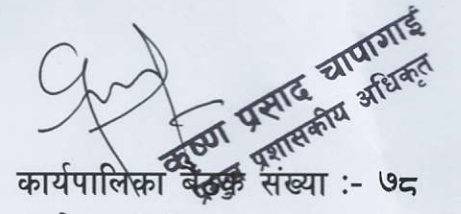 कृष्ण प्रसाद चापागाई
प्रमुख प्रशासकीय अधिकृत
कार्यपालिका बैठक संख्या :- ७८